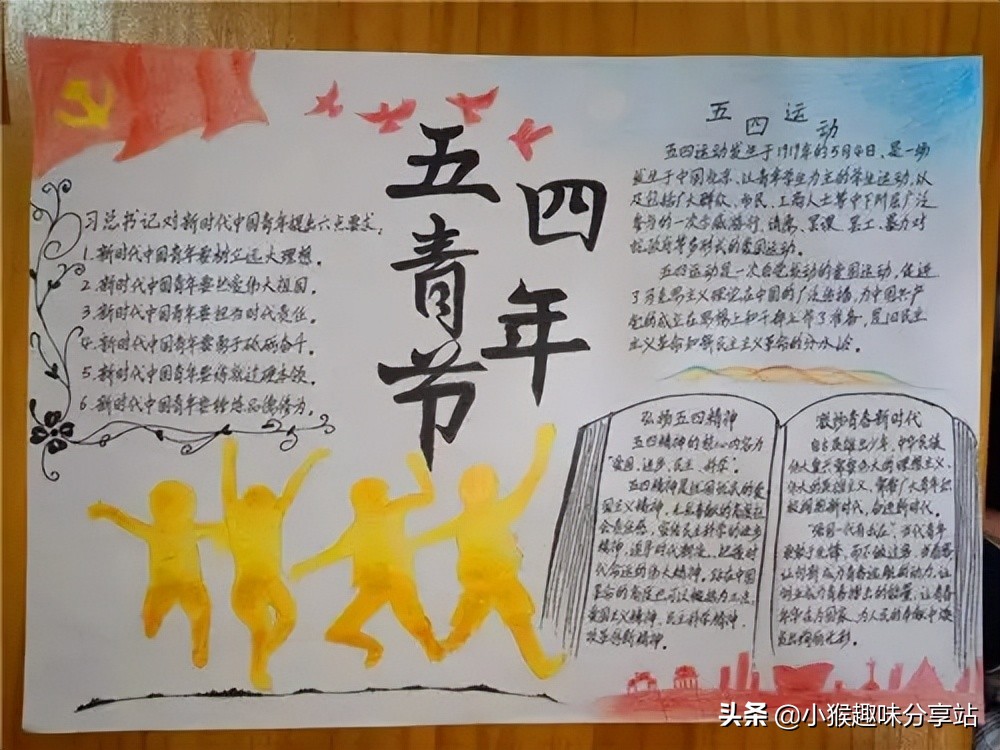 五四青年节
习总书记对新时代中国青年提出六点要求：
1.新时代中国青年要树立远大理想。
2.新时代中国青年要热爱伟大祖国。
3.新时代中国青年要担当时代责任。
4.新时代中国青年要勇于砥砺奋斗。
5.新时代中国青年要练就过硬本领。
6.新时代中国青年要锤炼品德修为。
五四运动
五四运动发生于1919年的5月4日、是一场
发生于中国北京、以青年学生为主的学生运动，以
及包括广大群众、市民、工商人士等中下阶层广泛
参与的一次示威游行，请愿、罢课、罢工、暴力对
抗政府等多形式的爱国运动。
五四运动是一次自觉发动的爱国运动，促进
了马克思主义理论在中国的广泛传播，为中国共产
党的成立在思想上和干部上作了准备，是旧民主
主义革命和新民主主义革命的分水岭。
弘扬五四精神
五四精神的核心内容为
“爱国、进步、民主、科学”。
五四精神是
国主义精神，
会责任感，
精神，
代命运的伟大精神。
革命的
爱国主义精神、民主科学精神、
改革创新精神。
激扬青春新时代
自古英雄出少年，中华民族
伟大复兴需要伟大的理想主义、
伟大的英雄主义，需要广大青年积
极拥抱新时代，奋进新时代。
“强国一代有我在”，当代青年
要敢于先锋，而不做过客，
让创新成为青春远航的动力，让
创业成为青春搏击的能量，让青春
年华在为国家、为人民的奉献中焕
发出绚丽光彩。
头条 @小猴趣味分享站